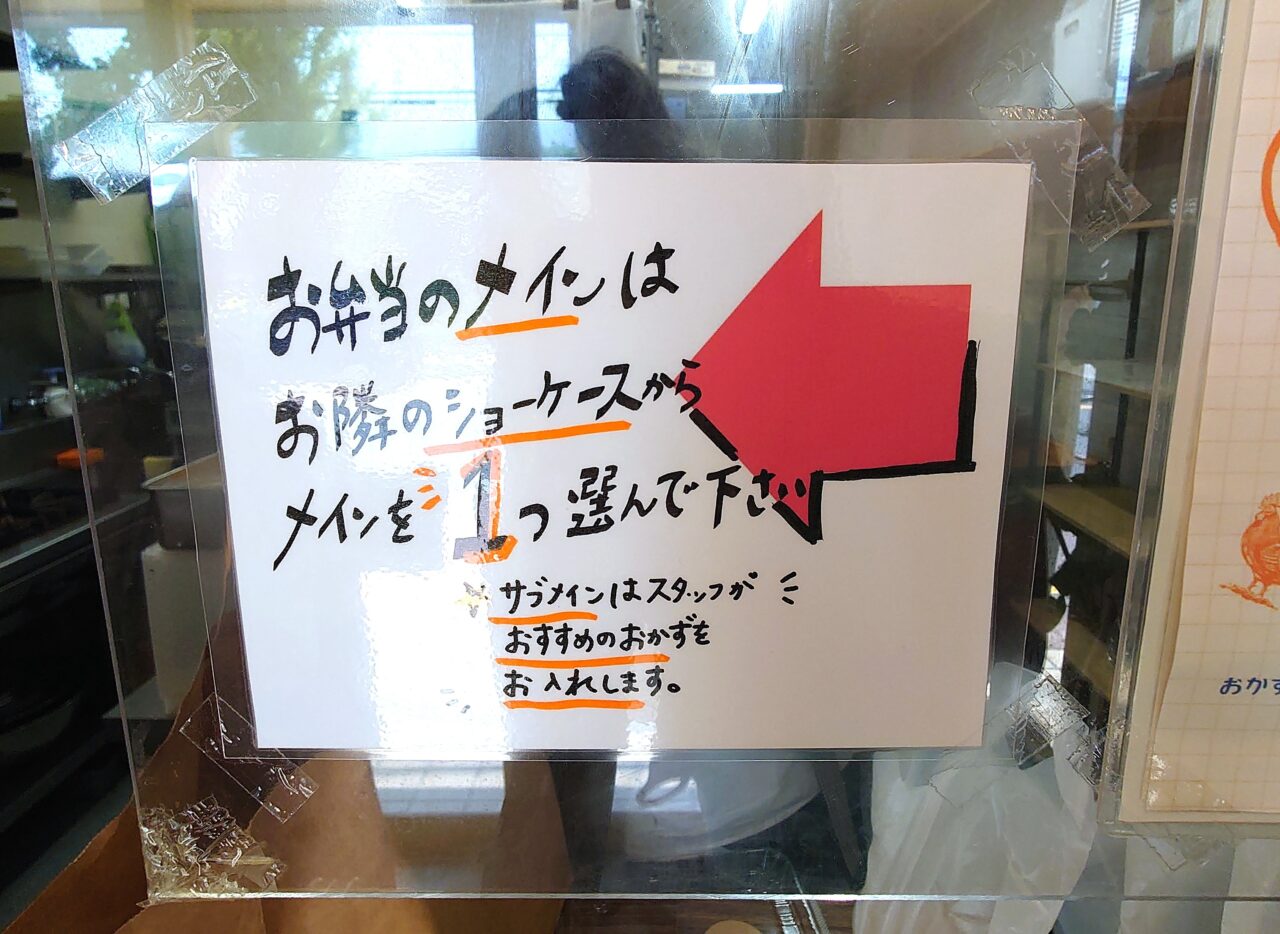 お弁当のメインは
お隣のショーケースから
メインを1つ選んで下さい
サブメインはスタッフが
おすすめのおかずを
お入れします。
おかず